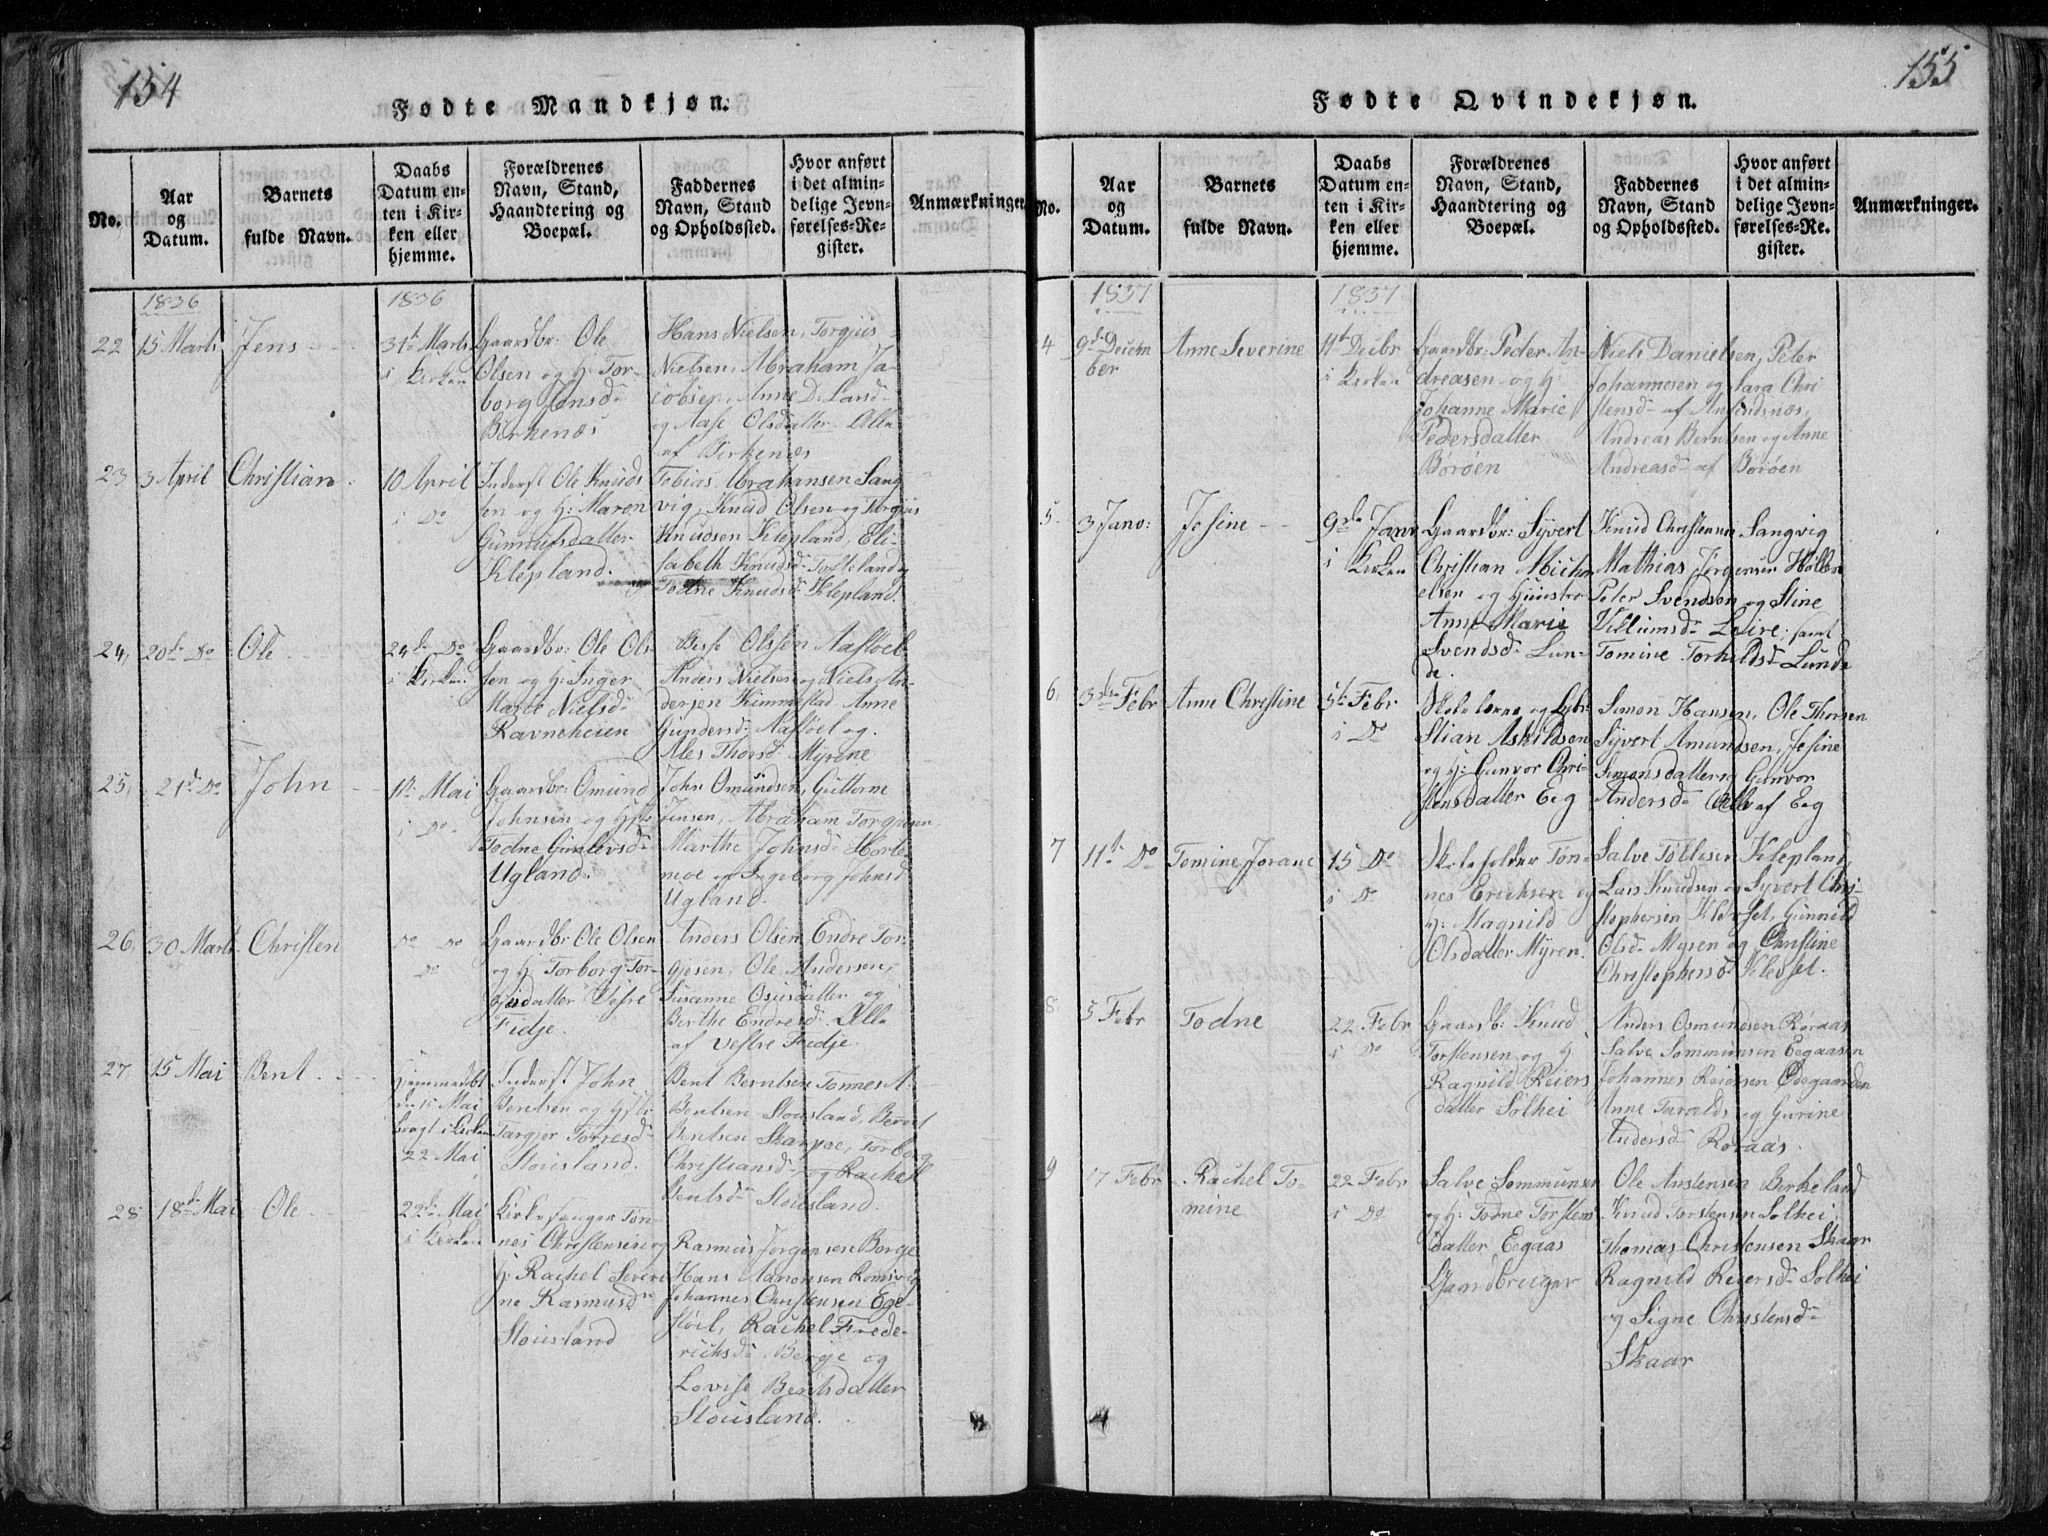 154
Fødte Mandkjøn.
No.
Aar
og
Datum.
Barnets
fulde Navn.
Daabs
Datum en-
ten i Kir-
ken eller
hjemme.
Forældrenes
Navn, Stand,
Haandtering og
Boepæl.
Faddernes
Navn, Stand
og Opholdssted.
Hvor anført
i det almin-
delige Jevn-
førelses-Re-
gister.
Anmærkninger
1836
1836
22
15 Marts
Jens
31te Marts
i Kirken
Gaardbr: Ole
Olsen og H: Tor-
borg Jensd
Birkenæs
Hans Nielsen, Torgius
Nielsen, Abraham Ja-
cobsen, Anne D: Land
og Aase Olsdatter Alle
af Birkenæs
23
3 April
Christian
10 April
i Do
Inderst Ole Knuds
sen og H: Maren
Gunnufsdatter
Klepland.
Tobias Abrahamsen Sang
vig, Knud Olsen og Torgius
Knudsen Klepland, Eli-
sabeth Knudsd Tofteland
og Todne Knudsd Klepland.
24,
20de Do
Ole
24de Do
i Kirken
Gaardbr: Ole Ols-
sen og H: Inger
Marie Nielsd
Ravneheien
Besse Olssen Aasløel
Anders Nielsen og Niels An-
dersen Kimmestad, Anne
Gundersd Aasløel og
Ales Thorsd Myrene
25,
21de Do
John
1te Mai
i Do
Gaardbr: Omund
Johnsen og Hst:
Todne Gunlevsd
Ugland.
John Omundsen, Guttorm
Jensen, Abraham Torgiusen
Marthe Johnsd Horte-
moe og Ingeborg Johnsd
Ugland.
26,
30 Marts
Christen
Do Do
Do
Gaardbr: Ole Olsen
og H: Torborg Tor-
gjusdatter Vestre
Fidje.
Anders Olsen, Endre Tor-
gjesen, Ole Andersen,
Susanne Osusdatter og
Berthe Endresd Alle
af Vestre Fidje.
27
15 Mai
Bent
Hjemmedøbt
den 15 Mai
bragt i Kirken
22 Mai
Inderst John
Bentsen og Hst:
Targjer Torresd
Stousland.
Bent Berntsen Tonnes A.
Bentsen Stousland, Bernt
Bentsen Skarpoe, Torborg
Christiansd og Rachel
Bentsd Stousland.
28
18de Mai
Ole
22de Mai
i Kirken
Kirkesanger Tøn-
nes Christensen og
H: Rachel Severi
ne Rasmusd
Stousland
Rasmus Jørgensen Berge
Hans Aanonsen Romsvig
Johannes Christensen Ege-
støel, Rachel Frede-
richsd Berge og
Lovise Bentsdatter
Stousland.
155
Fødte Qvindekjøn.
No.
Aar
og
Datum.
Barnets
fulde Navn.
Daabs
Datum en-
ten i Kir-
ken eller
hjemme.
Forældrenes
Navn, Stand,
Haandtering og
Boepæl.
Faddernes
Navn, Stand
og Opholdssted.
Hvor anført
i det almin-
delige Jevn-
førelses-Re-
gister.
Anmærkninger.
1837
1837
4
9de Decem
ber
Anne Severine
11te Decbr
i Kirken
Gaardbr: Peder An-
dreasen og H:
Johanne Marie
Pedersdatter
Børøen
Niels Danielsen, Peter
Johannesen og Sara Chri
stensd af Ansindsnæs,
Andreas Berntsen og Anne
Andreasd af Børøen
5.
3 Janr:
Josine
9de Janr
i Kirken
Gaardbr: Syvert
Christian Micha
elsen og Hustro
Anne Marie
Svendsd Lun-
de.
Knud Christensen Sangvig
Mathias Jørgensen Hollen
Peter Svendsen og Stine
Villumsd Leire, samt
Tomine Torkildsd Lunde
6.
3die Febr
Anne Christine
5te Febr
i Do
Skolelærer og Gbr:
Stian Askildsen
og H: Gunvor Chri-
stensdatter Eeg
Simon Hansen, Ole Thorsen
Syvert Amundsen, Josine
Simonsdatter og Gunvor
Andersd Alle af Eeg
7
11te Do
Tomine Jorane
15 Do
i Do
Skoleholder Tøn-
nes Erichsen og
H: Magnild
Olsdatter Myren.
Salve Tollisen Klepland,
Lars Knudsen og Syvert Chri-
stophersen Klevset, Gunnild
Olsd Myren og Christine
Christophersd Klevset.
8.
5 Febr
Todne
22. Febr
i Do
Gaardb: Knud
Torstensen og H
Ragnild Reiers
datter Solhei
Anders Osmundsen Røraas
Salve Sommunsen Eegaasen
Johannes Reiersen Ødegaarden
Anne Taralds og Gurine
Andersd Roraas.
9
7 Febr
Rachel To-
mine
22 Febr
i Do
Salve Sommunsen
og H: Todne Torstens
datter Eegaas
Gaardbruger
Ole Anstensen Birkeland
Knud Torstensen Solhei,
Thomas Christensen Skaar
Ragnild Reiersd Solhei
og Signe Christensd
Skaar